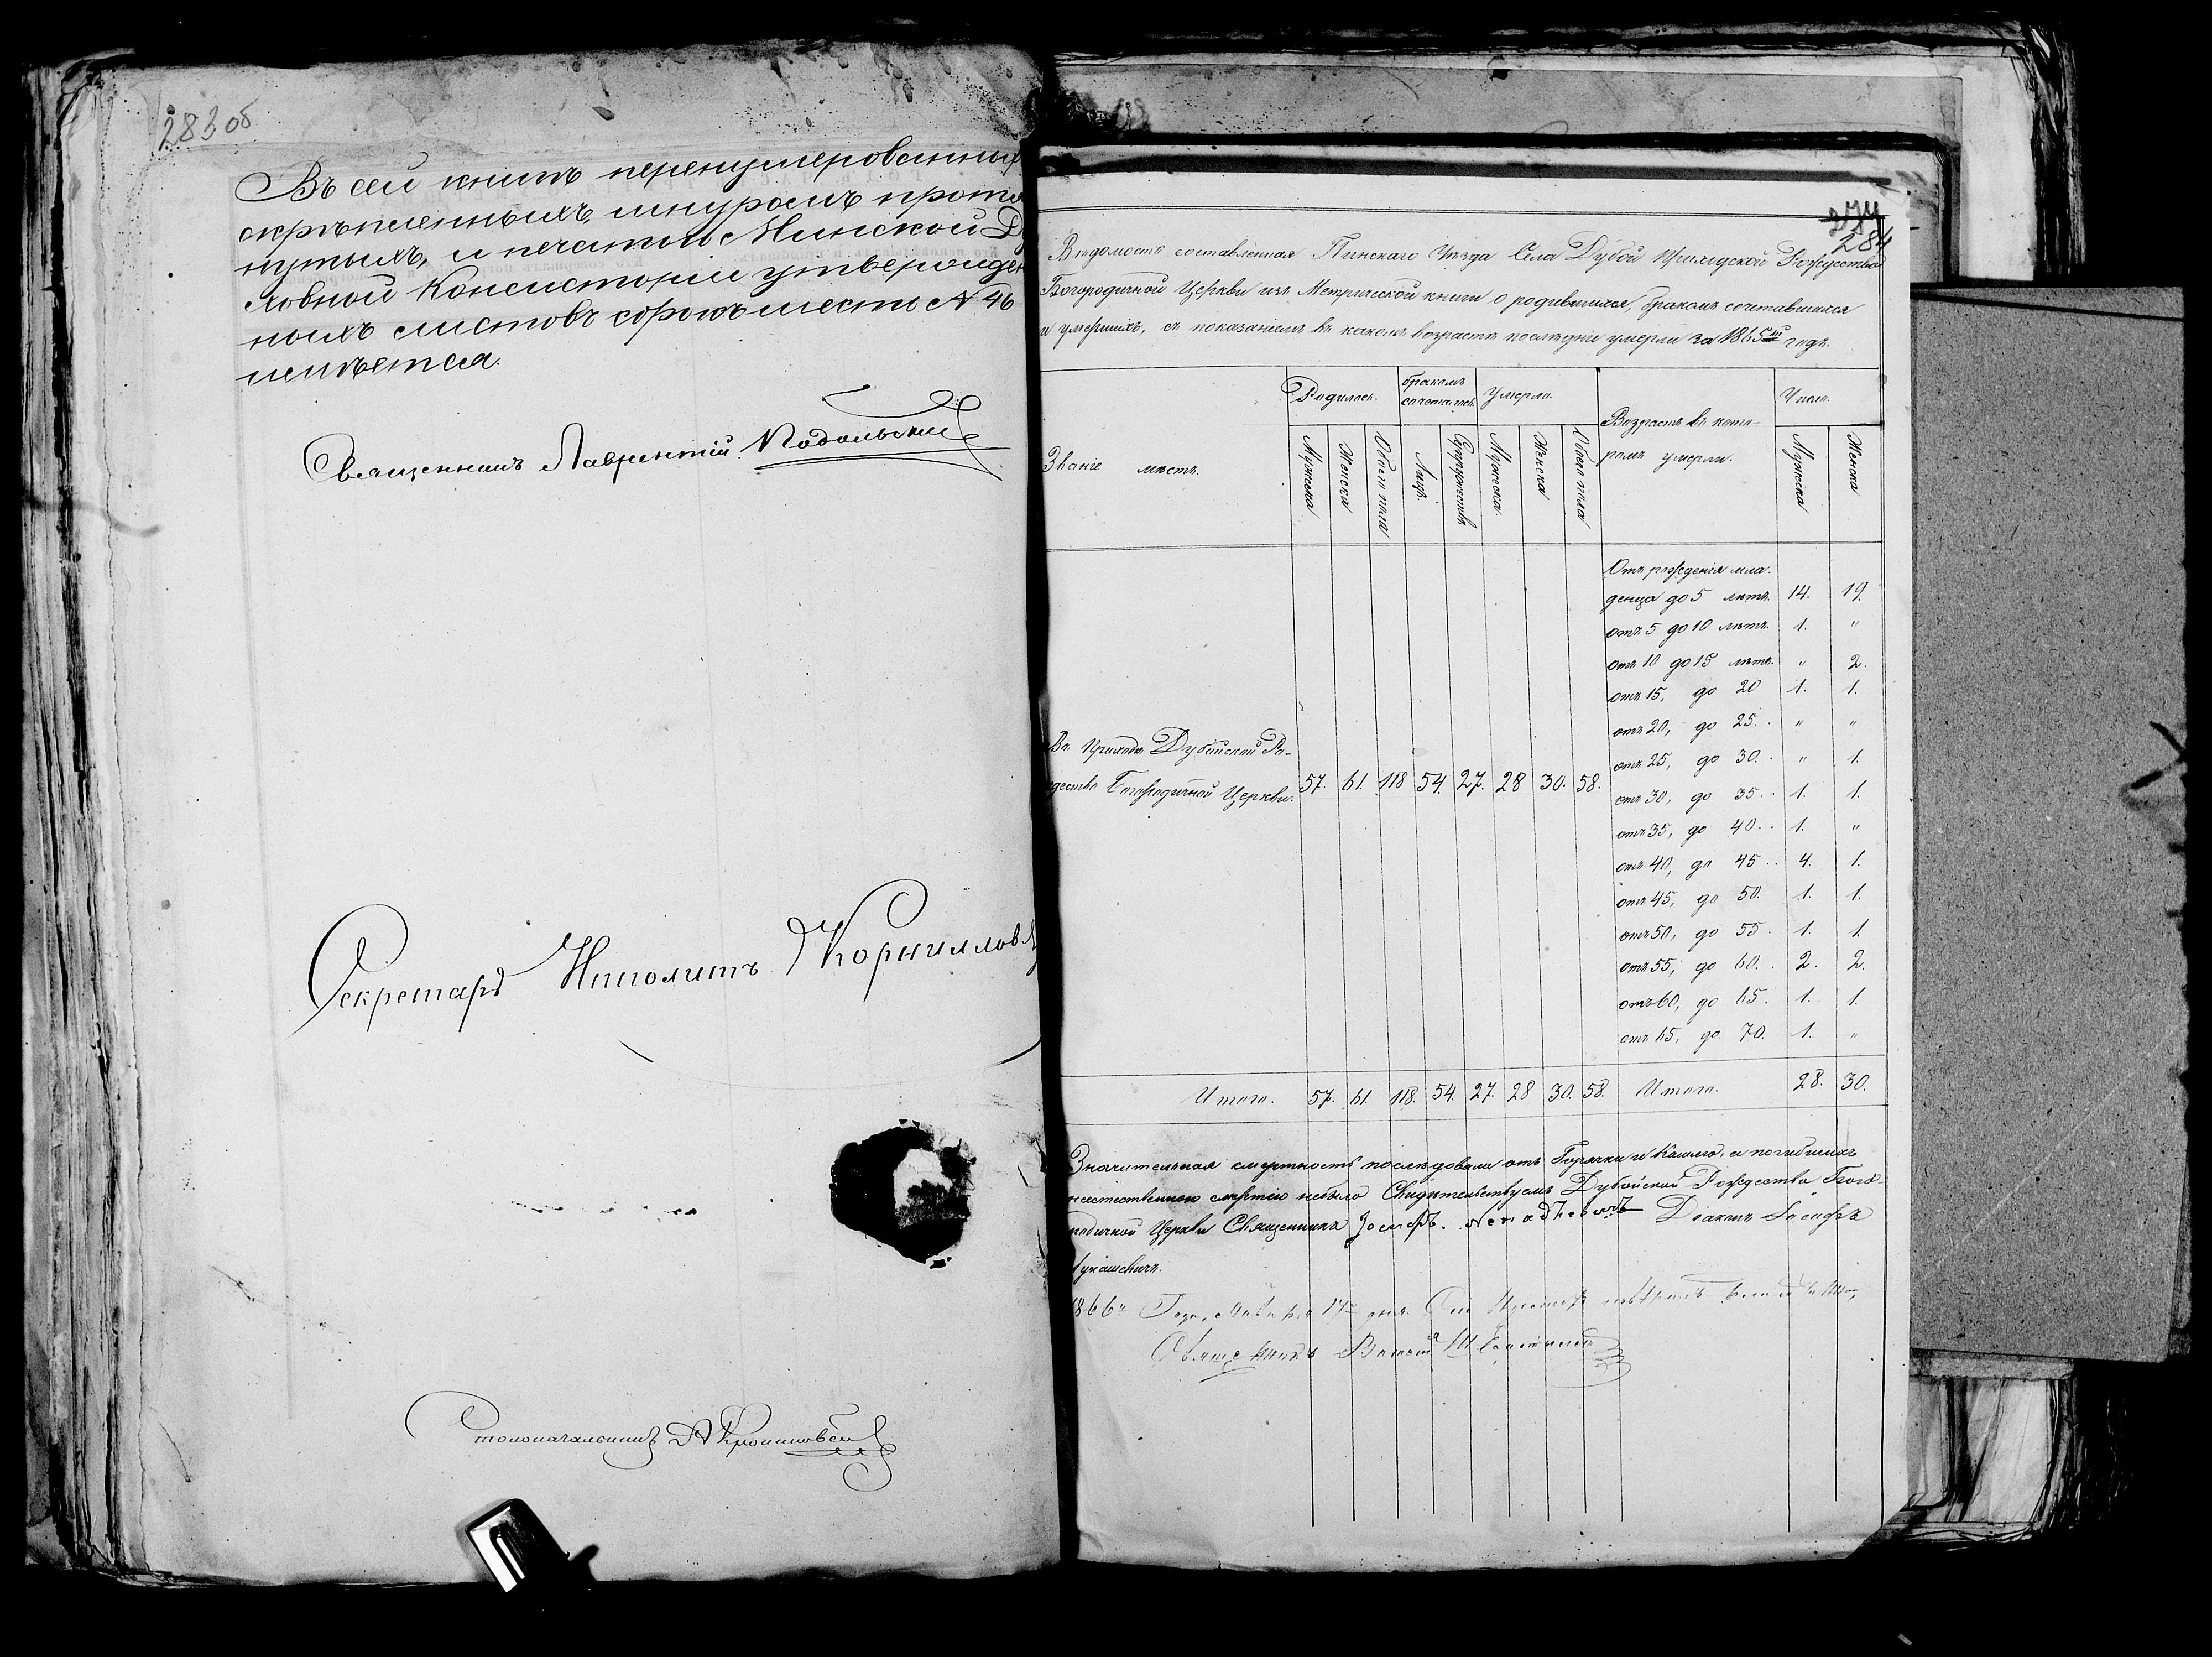 283об
Въ сей книгѣ перенумерованныхъ
скрѣпленныхъ шнуромъ протя
нутыхъ, и печатью Минской Ду
ховной Консисторіи утвержден
ныхъ листовъ сорокъ шесть № 46
имѣется.
Священникъ Лаврентій Подольскій
Секретарь Иполитъ Корниллов
Столоначальникъ
284
Вѣдомость составленная Пинскаго Уѣзда Села Дубой Приходской Рождество
Богородичной Церкви изъ Метрической книги о родившихся, бракомъ сочетавшихся
и умершихъ, съ показаніемъ въ какомъ возрастѣ послѣдніе умерли за 1865й годъ.
Званіе мѣстъ. Родилось. бракомъ сочетались Умерло. Возрастъ въ кото- Число.
ромъ умерли.
Мужеска Женска Обоего пола Лицъ. Супружествъ Мужеска. Женска Обоего пола Мужеска Женска
Отъ рожденія мла-
денца до 5 лѣтъ. 14. 19.
отъ 5 до 10 лѣтъ. 1. "
отъ 10 до 15 лѣтъ. " 2.
отъ 15, до 20 1. 1.
отъ 20, до 25. " "
отъ 25, до 30. " 1.
отъ 30, до 35. 1. 1.
отъ 35, до 40. 1. "
отъ 40, до 45 4. 1.
отъ 45, до 50. 1. 1.
отъ 50, до 55. 1. 1.
отъ 55, до 60. 2. 2.
отъ 60, до 65. 1. 1.
отъ 65, до 70. 1. "
Въ Приходѣ Дубойской Ро-
ждество Богородичной Церкви. 57. 61. 118 54. 27. 28 30. 58.
Итого. 57. 61. 118. 54. 27. 28 30. 58. Итого. 28. 30.
Значительная смертность послѣдовала отъ Горячки и Кашлю, а погибшихъ
неестественною смертію небыло Свидѣтельствуемъ Дубойской Рождество Бого-
родичной Церкви Священникъ Іосифъ Діаконъ Іосифъ
Лукашевичъ.
1866 Года, 17 дня
Священникъ